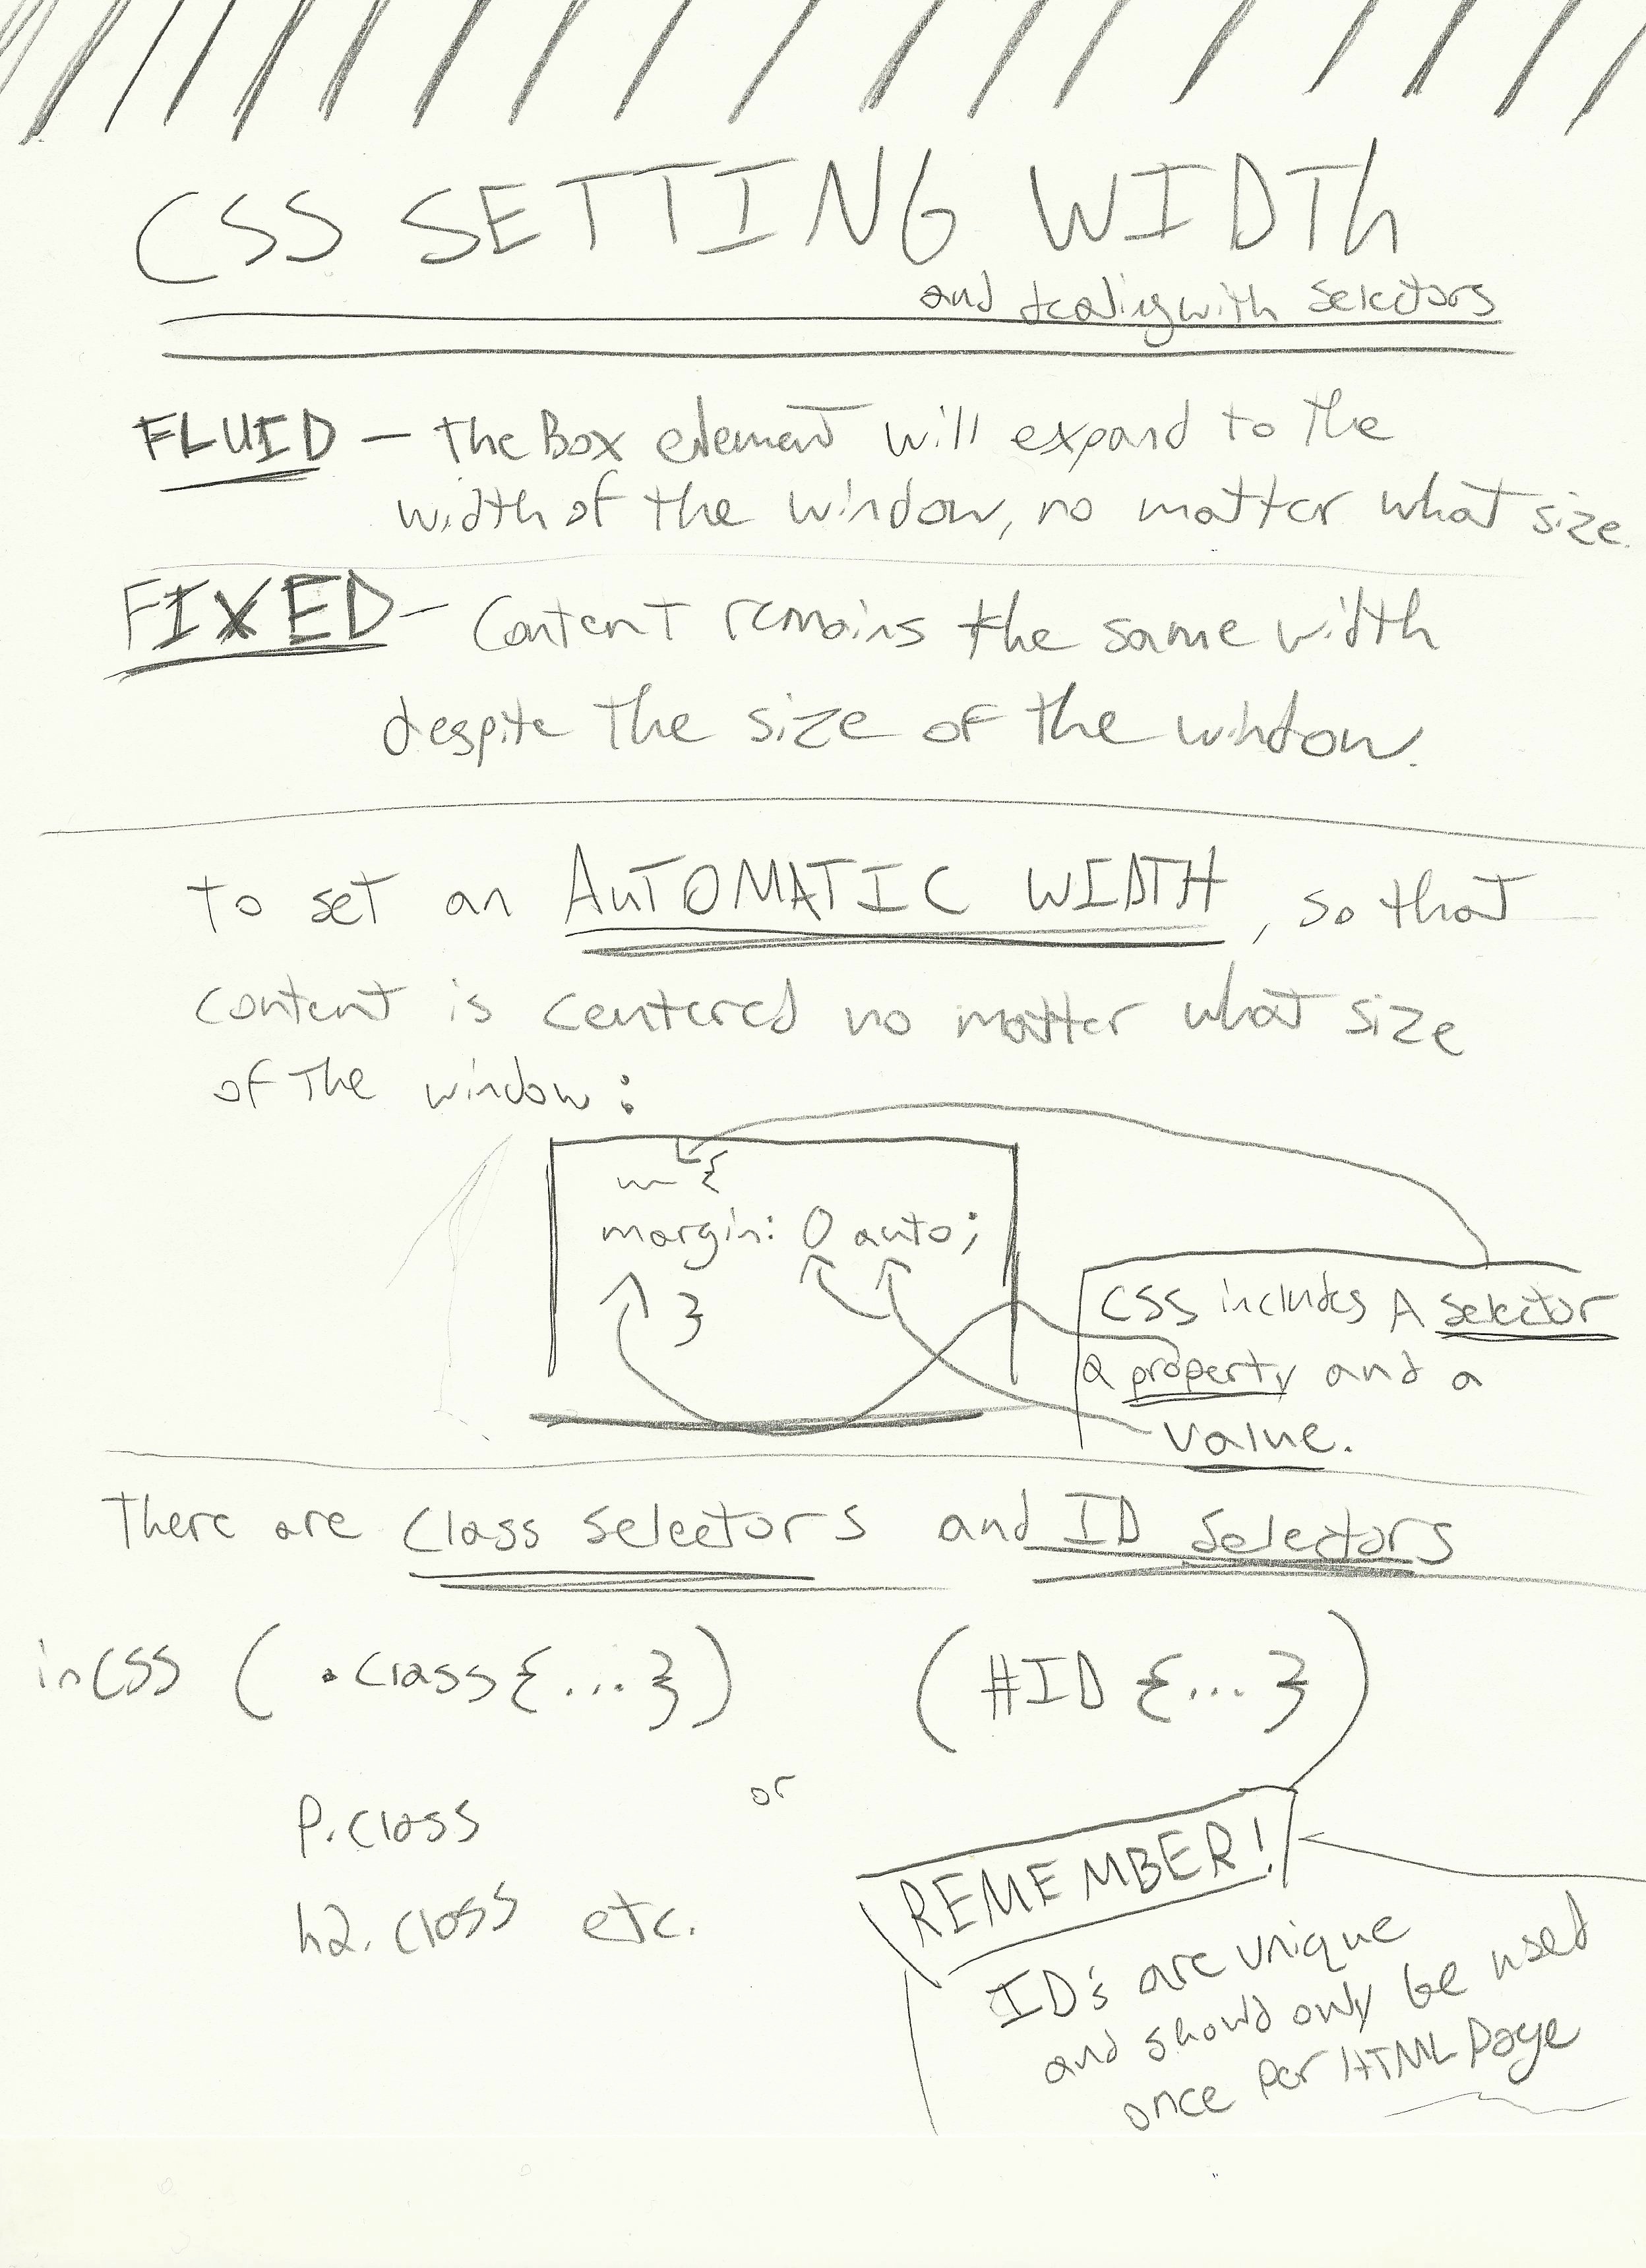 CSS SETTING WIDTh
and dealing with selectors
FLUID — the Box element will expand to the
width of the window, no matter what size.
FIXED — Content remains the same width
despite the size of the window.
to set an AuTOMATIC WIDTH, so that
content is centered no matter what size
of the window:
{
margin: 0 auto;
}
CSS includes A selector
a property and a
value.
There are class selectors and ID Selectors
in CSS ( .class{...} ) ( #ID {...} )
p.class or
h2.class etc.
REMEMBER!
ID's are unique
and should only be used
once per HTML page